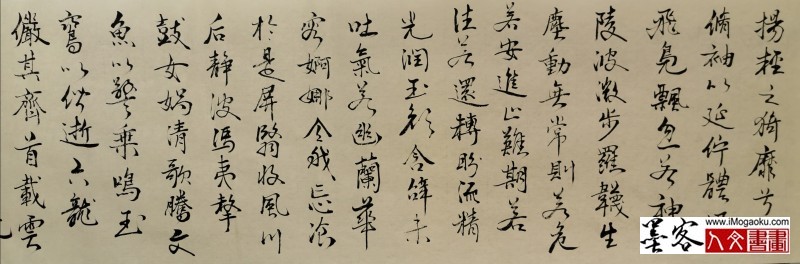 揚輕之猗靡兮
脩袖以延佇體迅
飛鳧飄忽若神
陵波微步羅韈生
塵動無常則若危
若安進止難期若
往若還轉眄流精
光潤玉顏含辭未
吐氣若幽蘭華
容婀娜令我忘飡
於是屏翳收風川
后靜波馮夷擊
鼓女媧清歌騰文
魚以警乘鳴玉
鸞以偕逝六龍
儼其齊首載雲
www.iMogaoku.com
墨客人文書畫